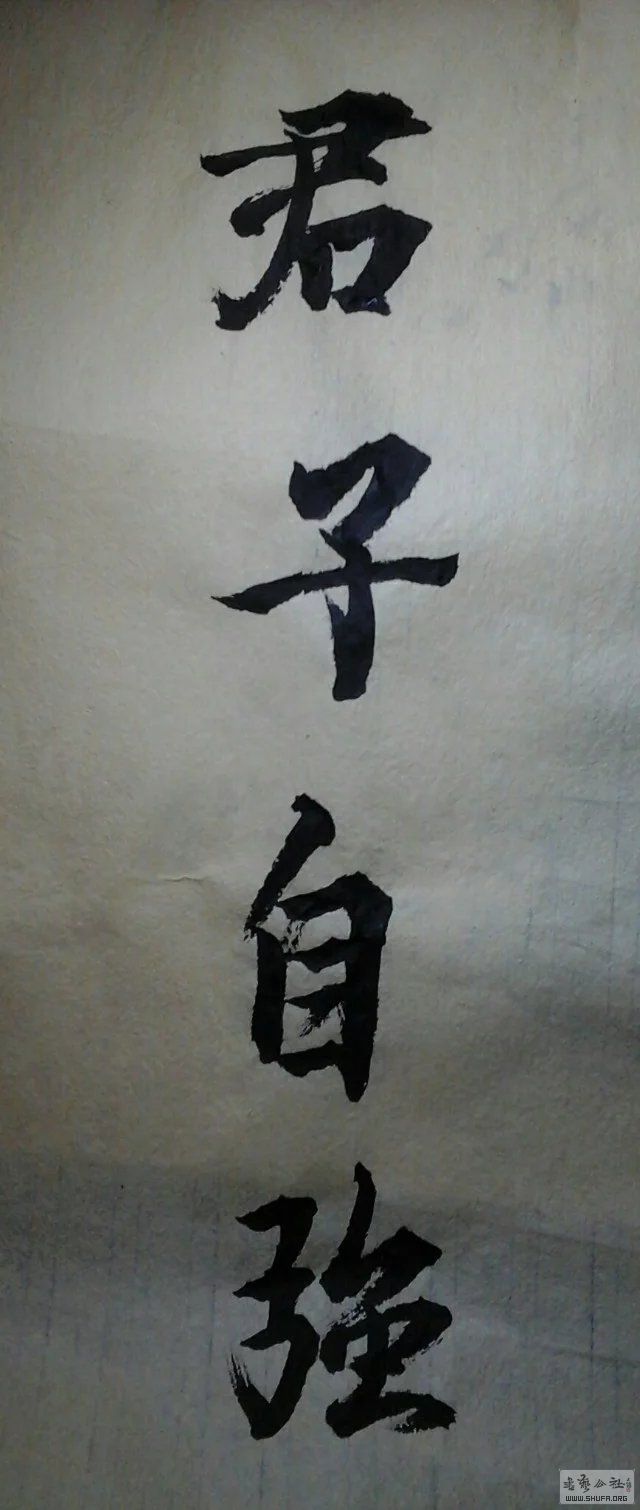 君子自強
书艺公社
WWW.SHUFA.ORG